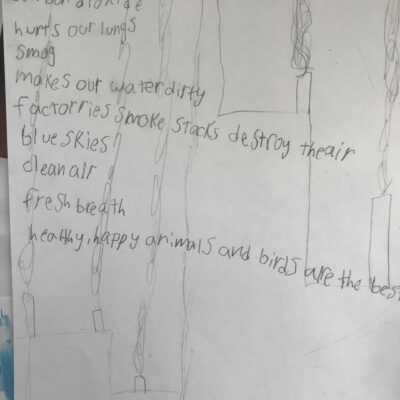 hurts our lungs
smog
makes our water dirty
factorries smoke stacks destroy the air
blue skies
clean air
fresh breath
healthy, happy animals and birds are the bes